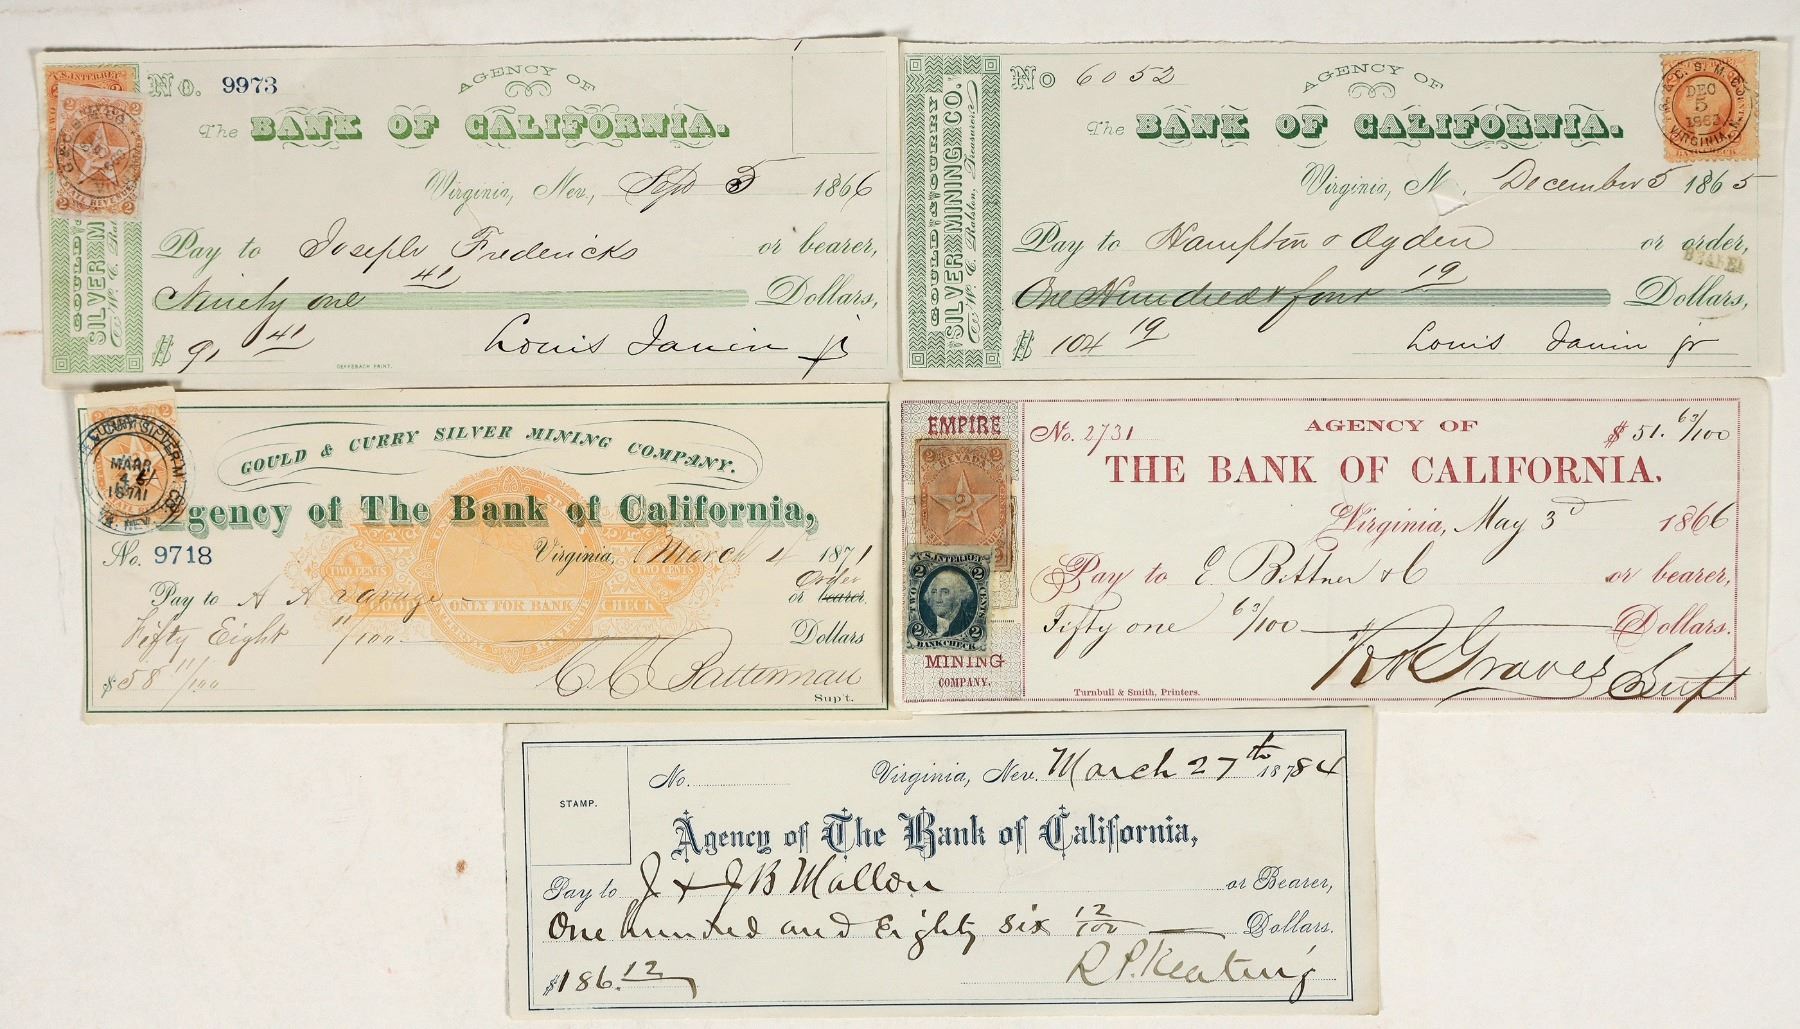 No. 9973
AGENCY OF
The BANK OF CALIFORNIA.
Virginia, Nev., Sept 5 1866
Pay to Joseph Fredericks or bearer,
Ninety one 41 Dollars,
$ 91 41 Louis Janin jr
DEFFEBACH PRINT.
GOULD & CURRY
SILVER M
To W. C. Ral
U.S. INTER. REV.
2
No 6052
AGENCY OF
The BANK OF CALIFORNIA.
Virginia, N , December 5 1865
Pay to Hampton & Ogden or order,
BEARER
One Hundred & four 19 Dollars,
$ 104 19 Louis Janin jr
GOULD & CURRY
SILVER MINING CO.
To W. C. Ralston, Treasurer,
G. & C. S. M. CO.
DEC
5
VIRGINIA, N.
BANK CHECK
GOULD & CURRY SILVER MINING COMPANY.
Agency of The Bank of California,
No. 9718 Virginia, March 4 1871
Pay to A A Savage or bearer.
Order
Fifty Eight 11/100 Dollars
$58 11/100 C C Batterman
Sup't.
TWO CENTS
GOOD ONLY FOR BANK CHECK
MAR
4
1871
EMPIRE
MINING
COMPANY.
No. 2731 AGENCY OF $ 51. 63/100
THE BANK OF CALIFORNIA.
Virginia, May 3d 1866
Pay to E Bittner & C or bearer,
Fifty one 63/100 Dollars.
Graves Supt
Turnbull & Smith, Printers.
NEVADA
2
U.S. INTER. REV.
2 2
TWO CENTS
2 2
BANK CHECK
STAMP.
No. Virginia, Nev. March 27th 18784
Agency of The Bank of California,
Pay to J & J B Mallon or Bearer,
One hundred and Eighty six 12/100 Dollars.
$186.12 R. P. Keating